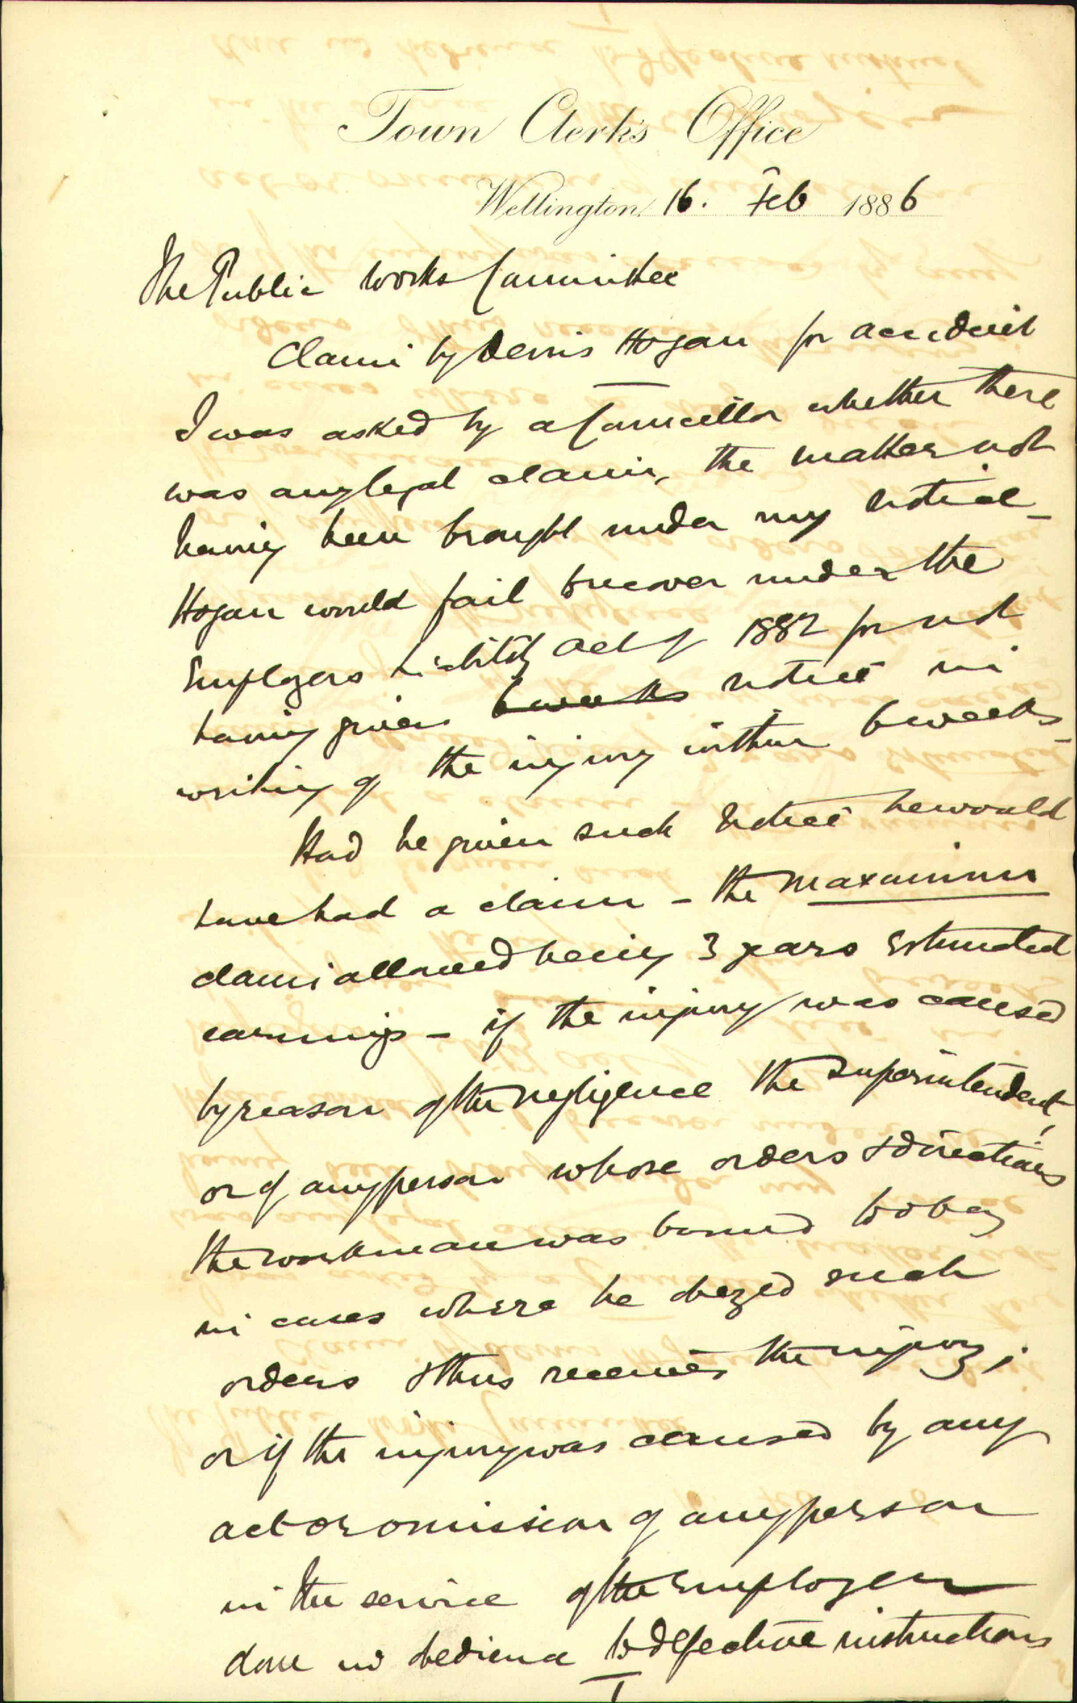 Town Clerk's Office
Wellington, 16. Feb 1886
The Public Works Committee
Claim by Denis Hogan for accident
I was asked by a Councillor whether there
was any legal claim, the matter not
having been brought under my notice_
Hogan would fail to recover under the
Employers Liability Act of 1882 for not
having given 6 weeks notice in
writing of the injury within 6 weeks_
Had he given such notice he would
have had a claim - the maximum
claim allowed being 3 years Estimated
earnings - if the injury was caused
by reason of the negligence the Superintendent,
or of any person whose orders & directions
the workman was bound to obey
in cases where he obeyed such
orders & thus received the injury;
or if the injury was caused by any
act or omission of any person
in the service of the Employer
done in obedience to defective instructions